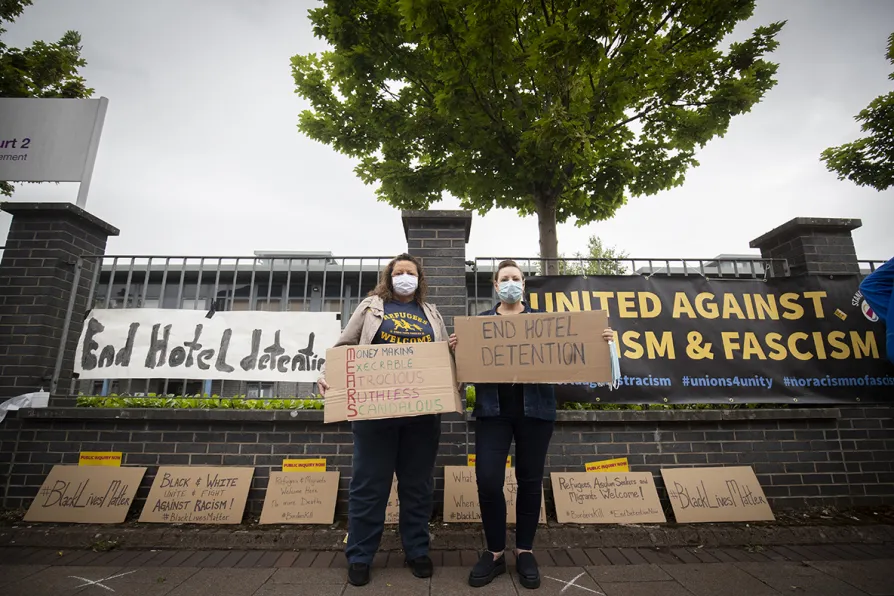 urt 2
ement
End Hotel detention
REFUGEES
WELCOME
MONEY MAKING
EXECRABLE
ATROCIOUS
RUTHLESS
SCANDALOUS
END HOTEL
DETENTION
UNITED AGAINST
ISM & FASCISM
racism #unions4unity #noracismnofasc
PUBLIC INQUIRY NOW
#BlackLivesMatter
BLACK & WHITE
UNITE & FIGHT
AGAINST RACISM!
#BlackLivesMatter
PUBLIC INQUIRY NOW
Refugees & Migrants
Welcome Here
No more Deaths
#BordersKill
What
When
PUBLIC INQUIRY NOW
Refugees, Asylum Seekers and
Migrants Welcome!
#BordersKill #EndDetention
#BlackLivesMatter